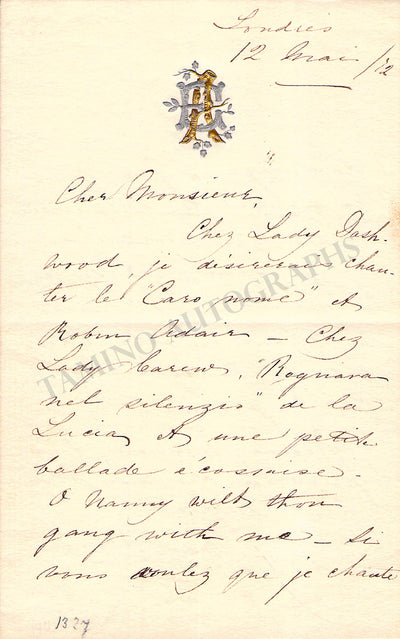 Londres
12 Mai /72
Cher Monsieur,
Chez Lady Dash-
wood, je désirerais chan-
ter le "Caro nome" et
Robin Adair — Chez
Lady Carew, "Regnava
nel silenzio" de la
Lucia et une petite
ballade écossaise.
O Nanny wilt thou
gang with me — Si
vous voulez que je chante
1327
TAMINO AUTOGRAPHS